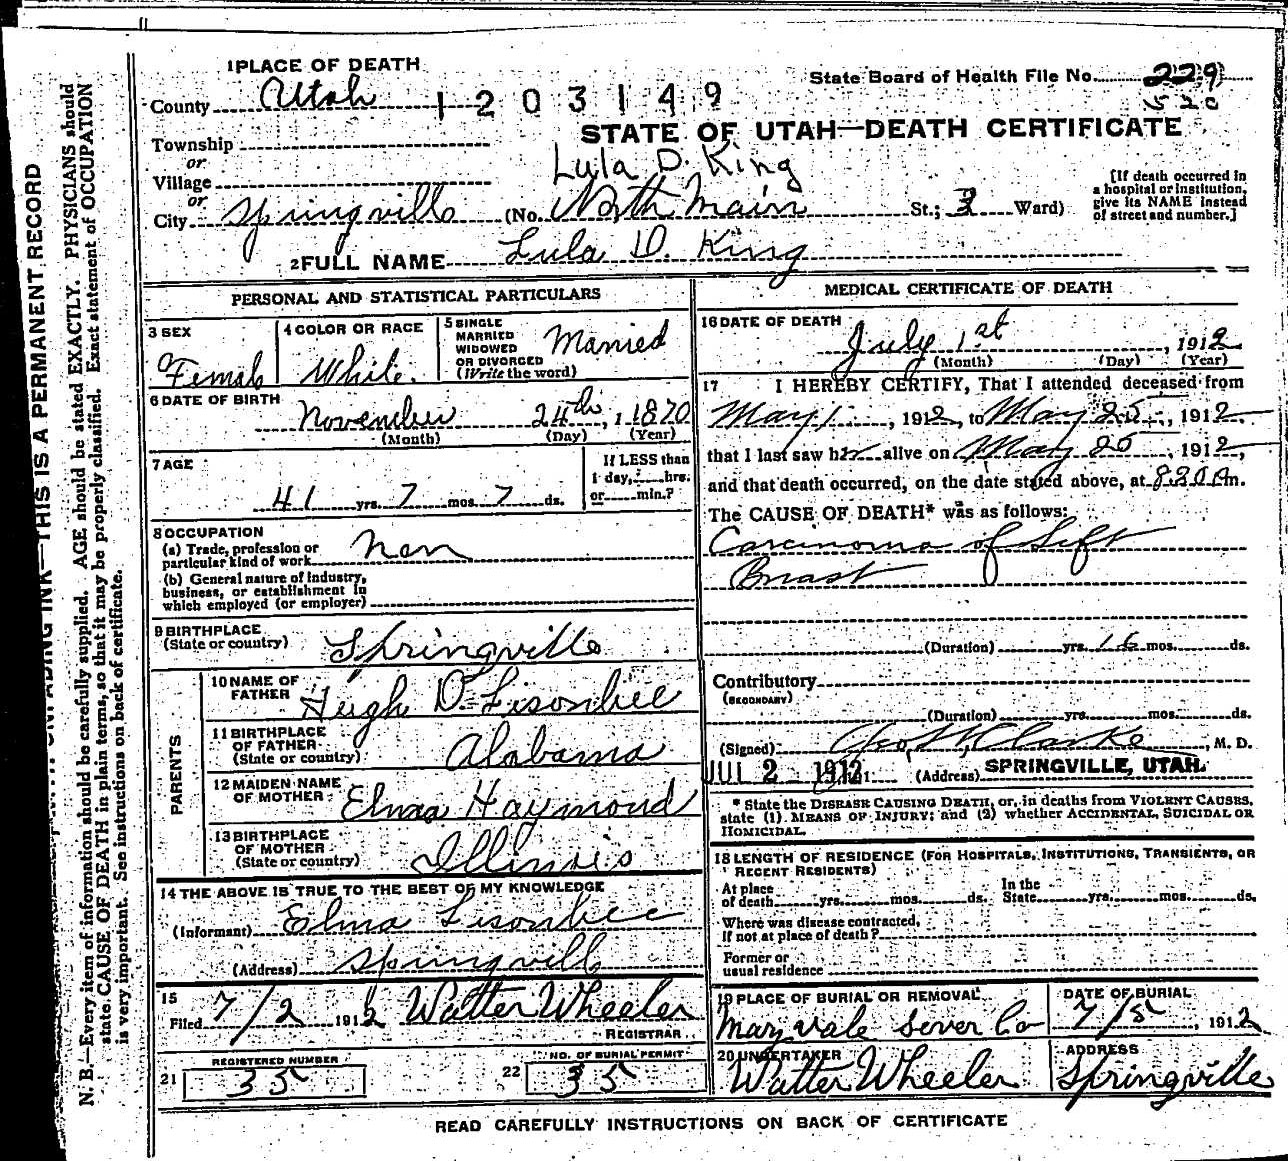 1 PLACE OF DEATH
State Board of Health File No. 229
County Utah 1203149
520
STATE OF UTAH—DEATH CERTIFICATE
Township
or
Lula D. King
Village
or
City Springville (No. North Main St.; 3 Ward)
[If death occurred in
a hospital or institution,
give its NAME instead
of street and number.]
2 FULL NAME Lula D. King
PERSONAL AND STATISTICAL PARTICULARS
3 SEX
Female
4 COLOR OR RACE
White.
5 SINGLE
MARRIED
WIDOWED
OR DIVORCED
(Write the word)
Married
6 DATE OF BIRTH
November 24th, 1 1870
(Month) (Day) (Year)
7 AGE
41 yrs. 7 mos. 7 ds.
If LESS than
1 day, hrs.
or min.?
8 OCCUPATION
(a) Trade, profession or
particular kind of work Non
(b) General nature of industry,
business, or establishment in
which employed (or employer)
9 BIRTHPLACE
(State or country) Springville
PARENTS
10 NAME OF
FATHER Hugh D. Lisonbee
11 BIRTHPLACE
OF FATHER
(State or country) Alabama
12 MAIDEN NAME
OF MOTHER Elma Haymond
13 BIRTHPLACE
OF MOTHER
(State or country) Illinois
14 THE ABOVE IS TRUE TO THE BEST OF MY KNOWLEDGE
(Informant) Elma Lisonbee
(Address) Springville
15
Filed 7/2 1912 Walter Wheeler
REGISTRAR
21 REGISTERED NUMBER
35
22 NO. OF BURIAL PERMIT
35
MEDICAL CERTIFICATE OF DEATH
16 DATE OF DEATH
July 1st, 1912
(Month) (Day) (Year)
17 I HEREBY CERTIFY, That I attended deceased from
May 1, 1912, to May 25, 1912
that I last saw her alive on May 25, 1912,
and that death occurred, on the date stated above, at 830 A m.
The CAUSE OF DEATH* was as follows:
Carcinoma of Left
Breast
(Duration) yrs. 16 mos. ds.
Contributory
(SECONDARY)
(Duration) yrs. mos. ds.
(Signed) Geo Clarke, M. D.
JUL 2 1912 191 (Address) SPRINGVILLE, UTAH.
* State the DISEASE CAUSING DEATH, or, in deaths from VIOLENT CAUSES,
state (1) MEANS OF INJURY; and (2) whether ACCIDENTAL, SUICIDAL OR
HOMICIDAL.
18 LENGTH OF RESIDENCE (FOR HOSPITALS, INSTITUTIONS, TRANSIENTS, OR
RECENT RESIDENTS)
At place
of death yrs. mos. ds.
In the
State yrs. mos. ds.
Where was disease contracted,
If not at place of death?
Former or
usual residence
19 PLACE OF BURIAL OR REMOVAL
Maryvale Sever Co
DATE OF BURIAL
7/5, 1912
20 UNDERTAKER
Walter Wheeler
ADDRESS
Springville
READ CAREFULLY INSTRUCTIONS ON BACK OF CERTIFICATE
INK—THIS IS A PERMANENT RECORD
N. B.—Every item of information should be carefully supplied. AGE should be stated EXACTLY. PHYSICIANS should
state CAUSE OF DEATH in plain terms, so that it may be properly classified. Exact statement of OCCUPATION
is very important. See instructions on back of certificate.